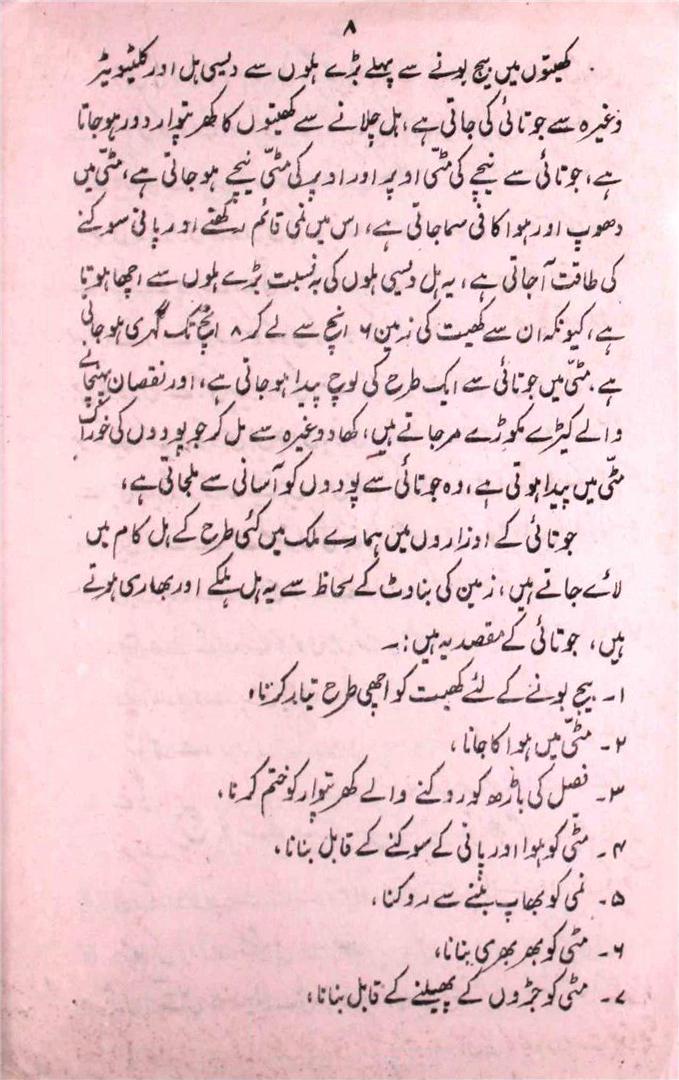 ۸
کھیتوں میں بیج بونے سے پہلے بڑے ہلوں سے دیسی ہل اور کلٹیویٹر
وغیرہ سے جوتائی کی جاتی ہے، ہل چلانے سے کھیتوں کا کھر پتوار دور ہوجاتا
ہے، جوتائی سے نیچے کی مٹّی اوپر اور اوپر کی مٹّی نیچے ہو جاتی ہے، مٹّی میں
دھوپ اور ہوا کافی سما جاتی ہے، اس میں نمی قائم رکھنے اور پانی سوکھنے
کی طاقت آجاتی ہے، یہ ہل دیسی ہلوں کی بہ نسبت بڑے ہلوں سے اچھا ہوتا
ہے، کیونکہ ان سے کھیت کی زمین ۶ انچ سے لے کر ۸ انچ تک گہری ہو جاتی
ہے۔ مٹّی میں جوتائی سے ایک طرح کی لوچ پیدا ہو جاتی ہے، اور نقصان پہنچانے
والے کیڑے مکوڑے مرجاتے ہیں، کھاد وغیرہ سے مل کر جو پودوں کی خوراک
مٹّی میں پیدا ہوتی ہے، وہ جوتائی سے پودوں کو آسانی سے ملجاتی ہے،
جوتائی کے اوزاروں میں ہمارے ملک میں کئی طرح کے ہل کام میں
لائے جاتے ہیں، زمین کی بناوٹ کے لحاظ سے یہ ہل ہلکے اور بھاری ہوتے
ہیں، جوتائی کے مقصد یہ ہیں:۔
۱۔ بیج بونے کے لئے کھیت کو اچھی طرح تیار کرنا،
۲۔ مٹّی میں ہوا کا جانا،
۳۔ فصل کی باڑھ کو روکنے والے کھر پتوار کو ختم کرنا،
۴۔ مٹی کو ہوا اور پانی کے سوکھنے کے قابل بنانا،
۵۔ نمی کو بھاپ بننے سے روکنا،
۶۔ مٹی کو بھر بھری بنانا،
۷۔ مٹی کو جڑوں کے پھیلنے کے قابل بنانا،